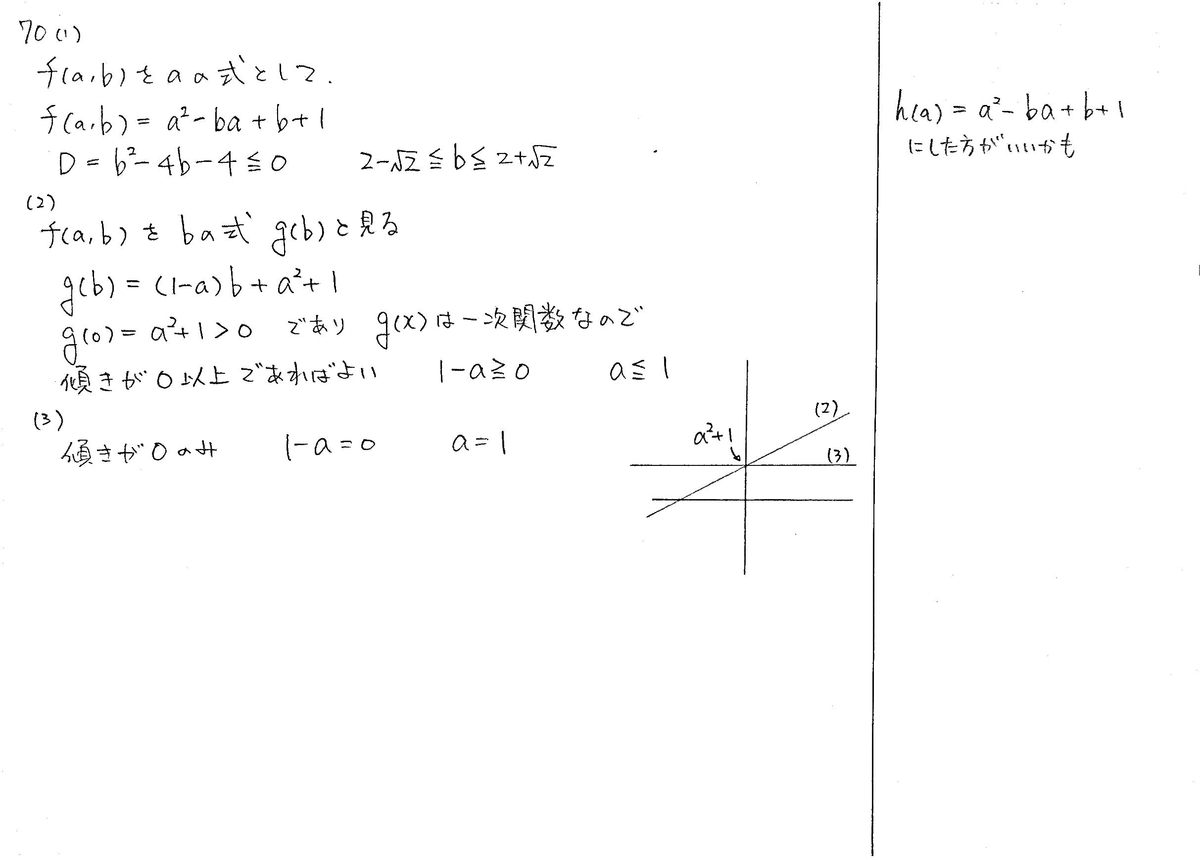 70 (1)
f(a,b)をaの式として.
f(a,b) = a² - ba + b + 1
D = b² - 4b - 4 ≦ 0 2-√2 ≦ b ≦ 2+√2
(2)
f(a,b)をbの式 g(b)と見る
g(b) = (1-a)b + a² + 1
g(0) = a²+1 > 0 であり g(x)は一次関数なので
傾きが0以上であればよい 1-a ≧ 0 a ≦ 1
(3)
傾きが0のみ 1-a = 0 a = 1
a²+1
(2)
(3)
h(a) = a² - ba + b + 1
にした方がいいかも